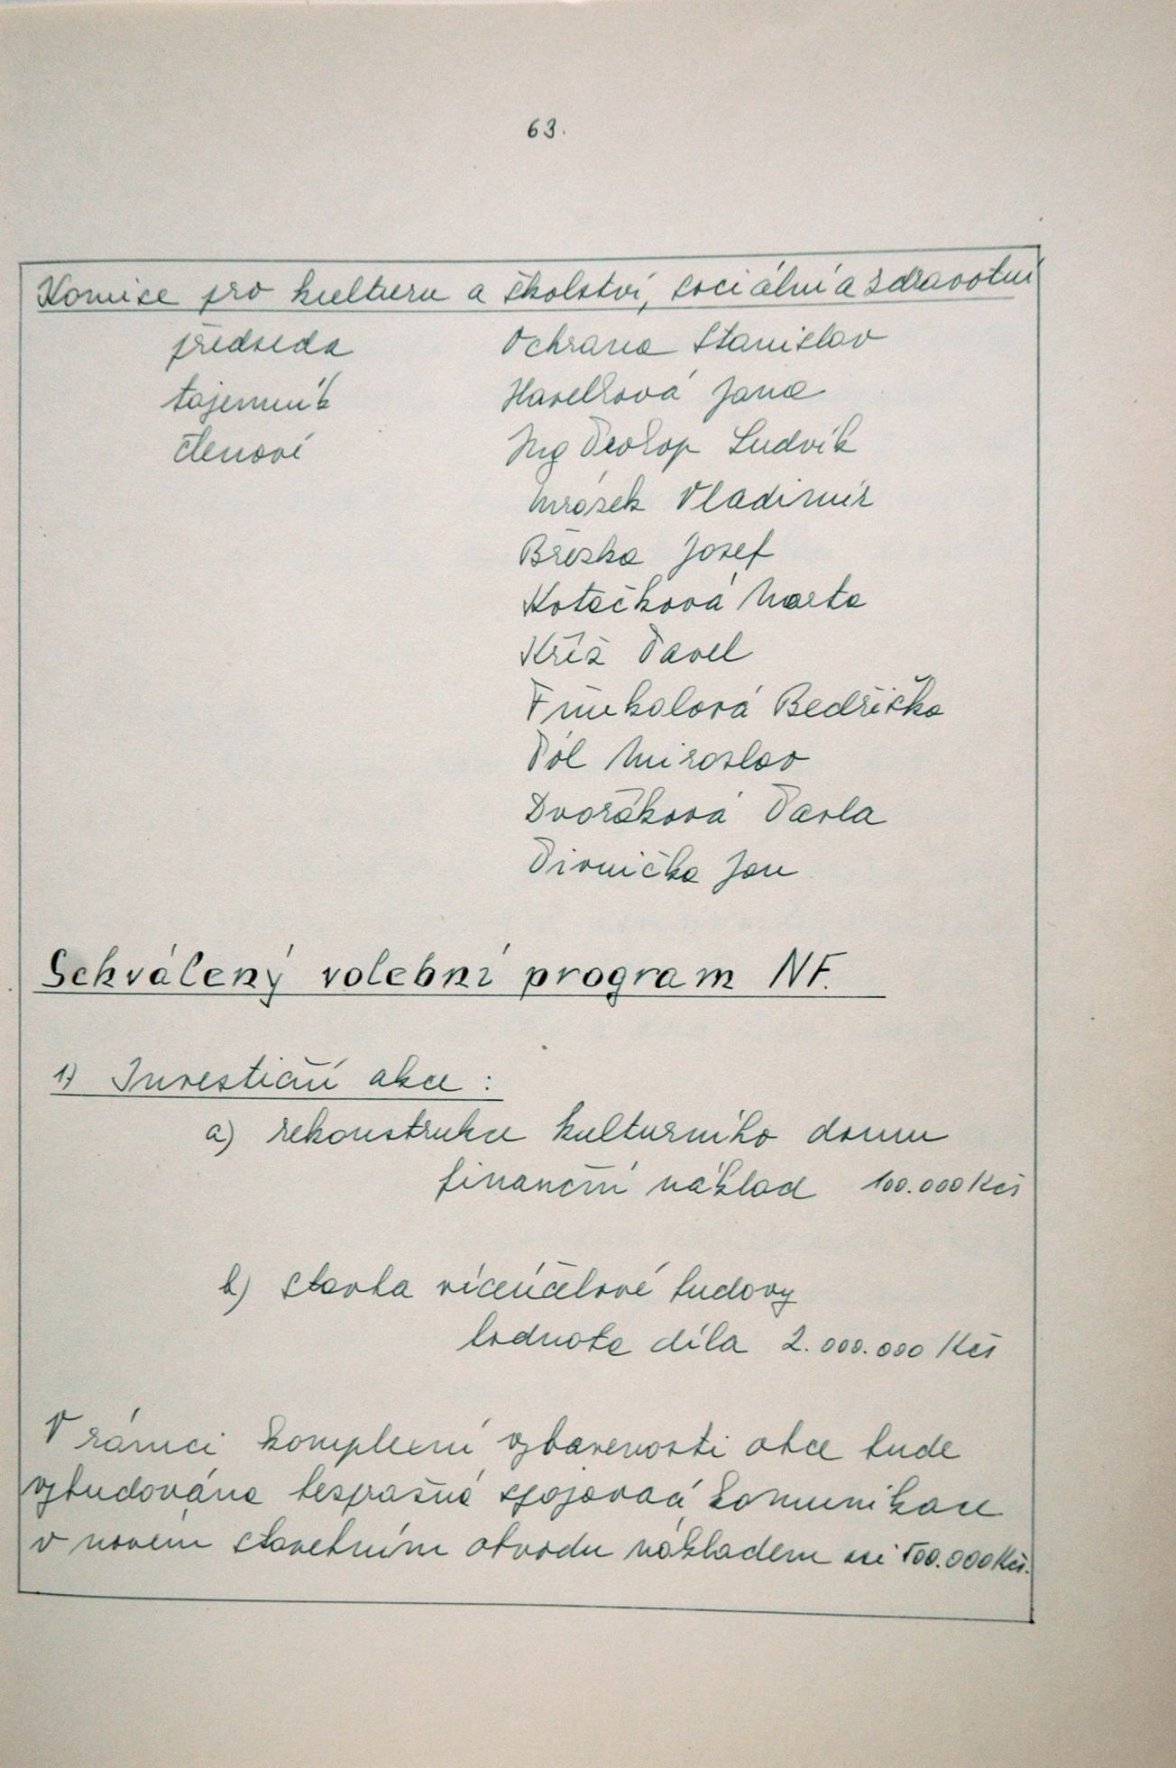 63.
Komise pro kulturu a školství, sociální a zdravotní
předseda Ochrana Stanislav
tajemník Havelková Jana
členové Ing Prokop Ludvík
Mrázek Vladimír
Březka Josef
Kotačková Marta
Kříž Pavel
Bedřiška
Pól Miroslav
Dvořáková Pavla
Pivnička Jan
Schválený volební program NF.
1) Investiční akce :
a) rekonstrukce kulturního domu
finanční náklad 100.000 Kčs
b) stavba víceúčelové budovy
hodnota díla 2.000.000 Kčs
V rámci komplexní vybavenosti obce bude
vybudována bezprašná spojovací komunikace
v novém stavebním obvodu nákladem asi 500.000 Kčs.